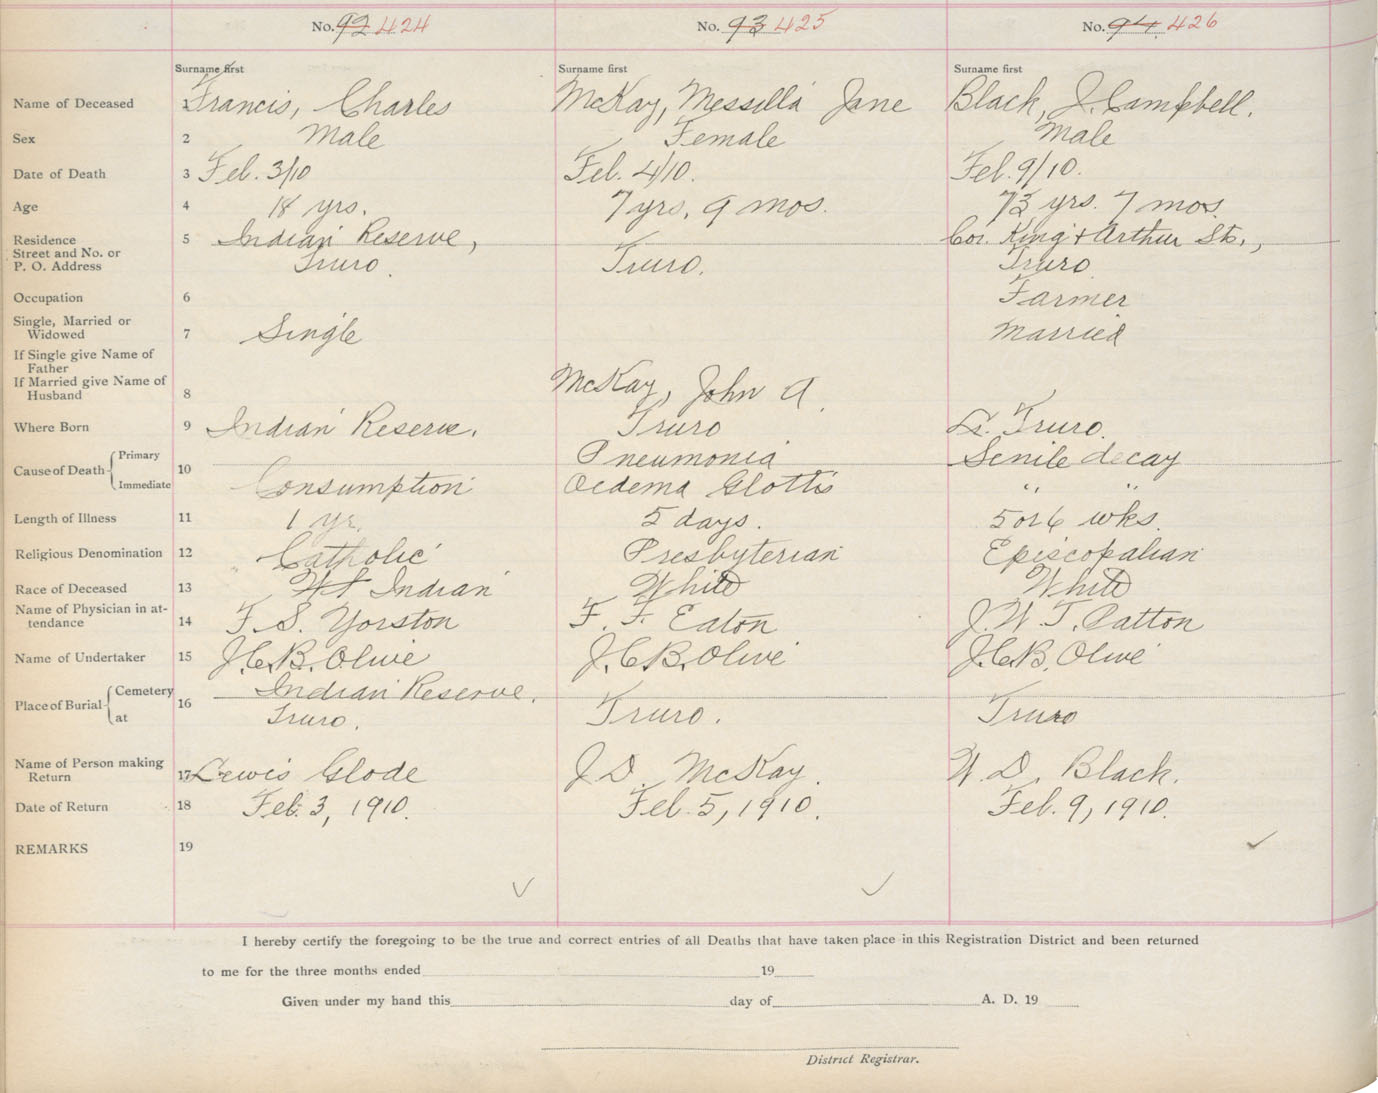 No. 92 424 No. 93 425 No. 94 426
Surname first Surname first Surname first
Name of Deceased 1 Francis, Charles McKay, Messilla Jane Black, J. Campbell.
Sex 2 Male Female Male
Date of Death 3 Feb. 3/10 Feb. 4/10. Feb. 9/10.
Age 4 18 yrs. 7 yrs, 9 mos. 73 yrs. 7 mos.
Residence 5 Indian Reserve, Cor. King + Arthur Sts.,
Street and No. or
P. O. Address Truro. Truro. Truro
Occupation 6 Farmer
Single, Married or
Widowed 7 Single Married
If Single give Name of
Father
If Married give Name of
Husband 8 McKay, John A.
Where Born 9 Indian Reserve. Truro Lr. Truro.
Cause of Death Primary 10 Pneumonia Senile decay
Immediate Consumption Oedema Glottis " "
Length of Illness 11 1 yr. 5 days. 5 or 6 wks.
Religious Denomination 12 Catholic Presbyterian Episcopalian
Race of Deceased 13 Indian White White
Name of Physician in at-
tendance 14 F. S. Yorston F. F. Eaton J. W. T. Patton
Name of Undertaker 15 J. C. B. Olive J. C. B. Olive J. C. B. Olive
Place of Burial Cemetery 16 Indian Reserve.
at Truro. Truro. Truro
Name of Person making
Return 17 Lewis Glode J. D. McKay. W. D. Black.
Date of Return 18 Feb. 3, 1910. Feb. 5, 1910. Feb. 9, 1910.
REMARKS 19
I hereby certify the foregoing to be the true and correct entries of all Deaths that have taken place in this Registration District and been returned
to me for the three months ended 19
Given under my hand this day of A. D. 19
District Registrar.